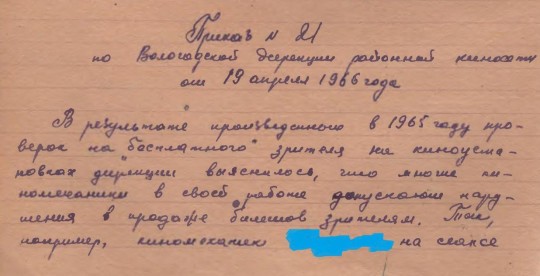 Приказ № 21
по Вологодской дирекции районной киносети
от 19 апреля 1966 года
В результате произведенного в 1965 году про-
верок на "бесплатного" зрителя на киноуста-
новках дирекции выяснилось, что многие ки-
номеханики в своей работе допускают нару-
шения в продаже билетов зрителям. Так,
например, киномеханик на сеансе